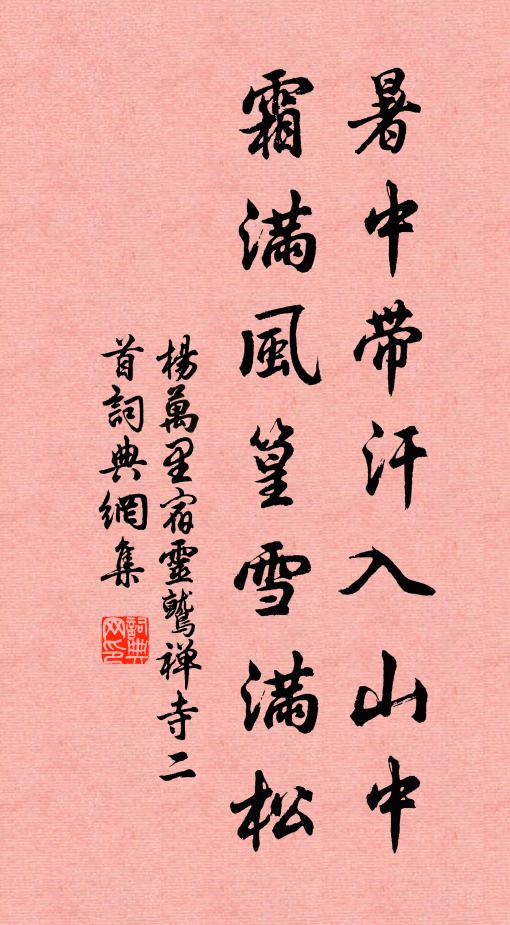 暑中帶汗入山中
霜滿風篁雪滿松
楊萬里宿靈鷲禅寺二
首詞典網集
詞典网印